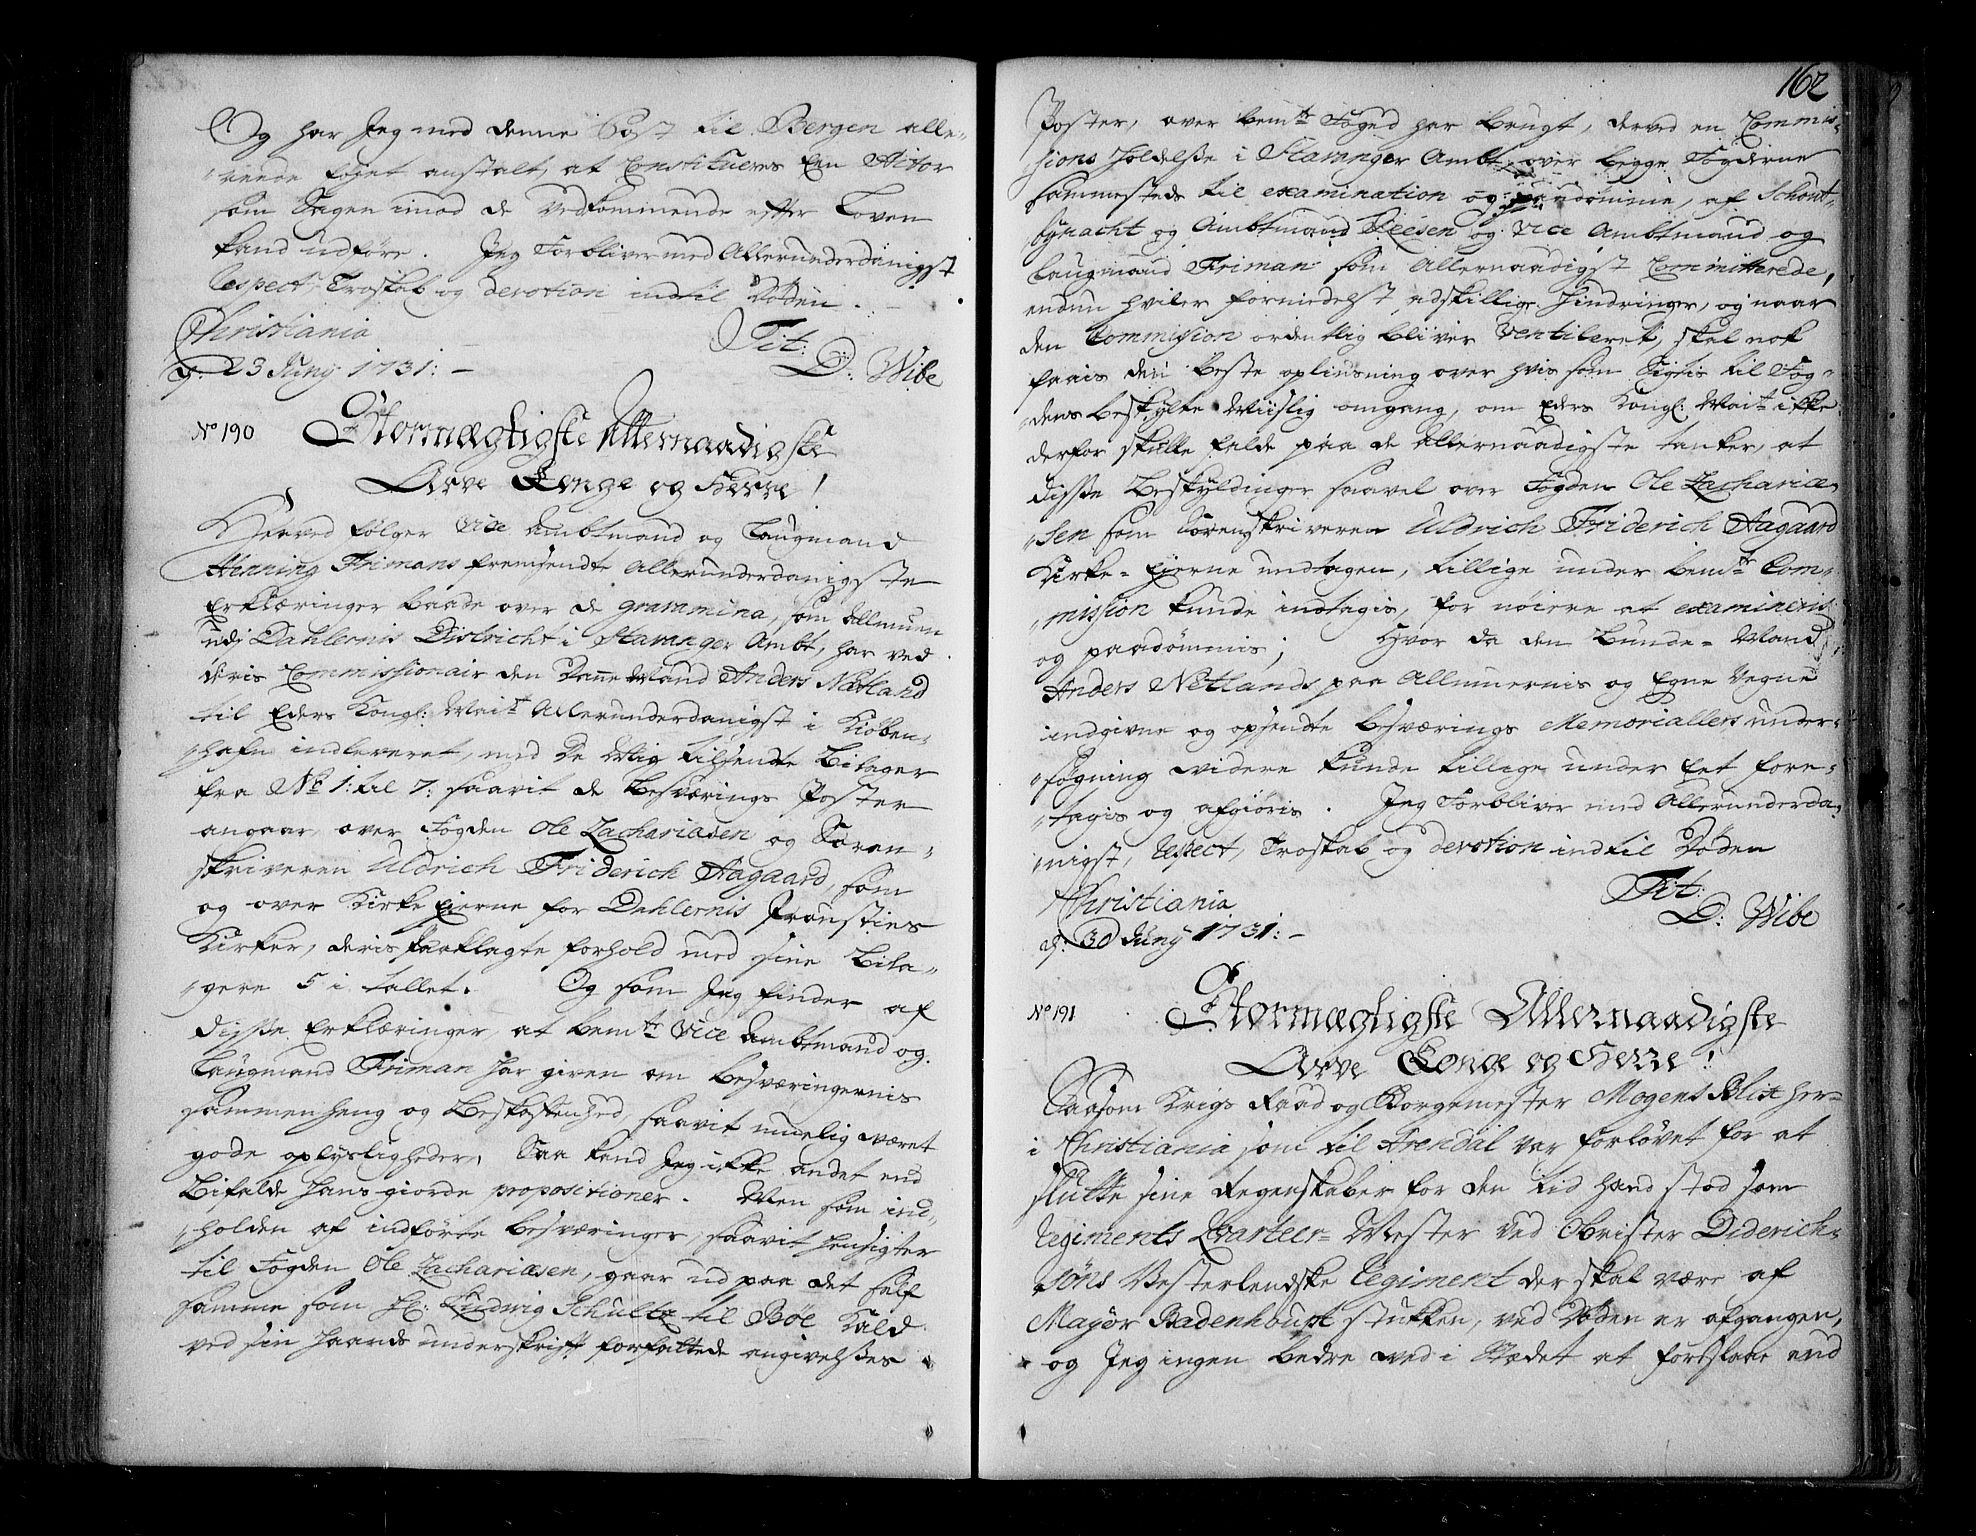 Og har Jeg med denne Post til Bergen alle-
reede føjet anstalt, at Constitueres Een Actor
som Sagen imod de Vedkommende efter Loven
kand udføre. Jeg Forbliver med Allerunderdanigst
Respect, Troskab og devotion indtil Døden.
Christiania
d: 23 Juny 1731:
Tit:
D: Wibe
No 190 Stormægtigste Allernaadigste
Arve Konge og Herre!
Herved følger Vice Ambtmand og Laugmand
Henning Frimans fremsendte Allerunderdanigste
Erklæringer baade over de gravamina, som Allmuen
udj Dahlernis District i Stavanger Ambt, har ved
deris Commissionair den Danne Mand Anders Netland
til Eders Kongl: Mait Allerunderdanigst i Kiøben-
hafn indleveret, med De Mig tilsendte Bilager
fra No 1: til 7: saavit de Besværings Poster
angaar, over Fogden Ole Zachariasen og Soren-
skriveren Uldrich Friderich Aagaard, som
og over Kirke Ejerne for Dahlernis Prousties
Kirker, deris paaklagte forhold med sine Bila-
gere 5 i tallet. Og som Jeg finder af
disse Erklæringer, at bemte Vice Ambtmand og
Laugmand Friman har given om besværingernis
sammenheng og Beskaffenhed, saavit muelig været
gode oplysligheder, Saa kand Jeg ikke andet end
Bifalde hans giorde propositioner. Men som ind-
holden af indførte besværinger, saavit hensigter
til Fogden Ole Zachariæsen, gaar ud paa det self
samme som Hr: Ludwig Schultz til Bøe Kald
ved sin haands underskrift forfattede angivelses
162
Poster, over bemte Foged har brugt, derved en Commis-
sions holdelse i Stavanger Ambt over begge Fogderne
sammesteds til examination og paadømme, af Schout-
bynacht og Ambtmand Reesen og Vice Ambtmand og
Laugmand Friman som Allernaadigst Committerede,
endnu hviler formedelst adskillige hindringer, og naar
den Commission ordentlig bliver Ventileret, skal nok
faais den beste oplysning over hvis som Sigtis til Fog-
dens beskyldte Wiislig omgang, om Eders Kongl: Mait ikke
derfor skulle falde paa de Allernaadigste tanker, at
disse Beskyldinger saavel over Fogden Ole Zachariæ-
sen som Sorenskriveren Uldrich Friderich Aagaard
Kirke-Ejerne undtagen, tillige under bemte Com-
mission kunde indtagis, for nøiere at examineris
og paadømmis; Hvor da den Bunde-Mand
Anders Netlands paa Allmuernis og Egne Vegne
indgivne og opsendte besværings Memoriallers under-
søgning videre kunde tillige under Eet fore-
tagis og afgiøris. Jeg Forbliver med Allerunderda-
nigst, Respect, Troskab og devotion indtil Døden
Christiania
d: 30 Juny 1731:
Tit:
D: Wibe
No 191 Stormægtigste Allernaadigste
Arve Konge og Herre!
Saasom Krigs Raad og Borgemester Mogens Blix her-
i Christiania som til Arendal var forløvet for at
slutte sine Regenskaber for den tid hand stod som
Regiments Qvarteer-Mester ved Obrister Diderich-
søns Vesterlendske Regiment der skal være af
Major Badenhoupt stukken, ved Døden er afgangen,
og Jeg ingen bedre ved i Stædet at forestaae end